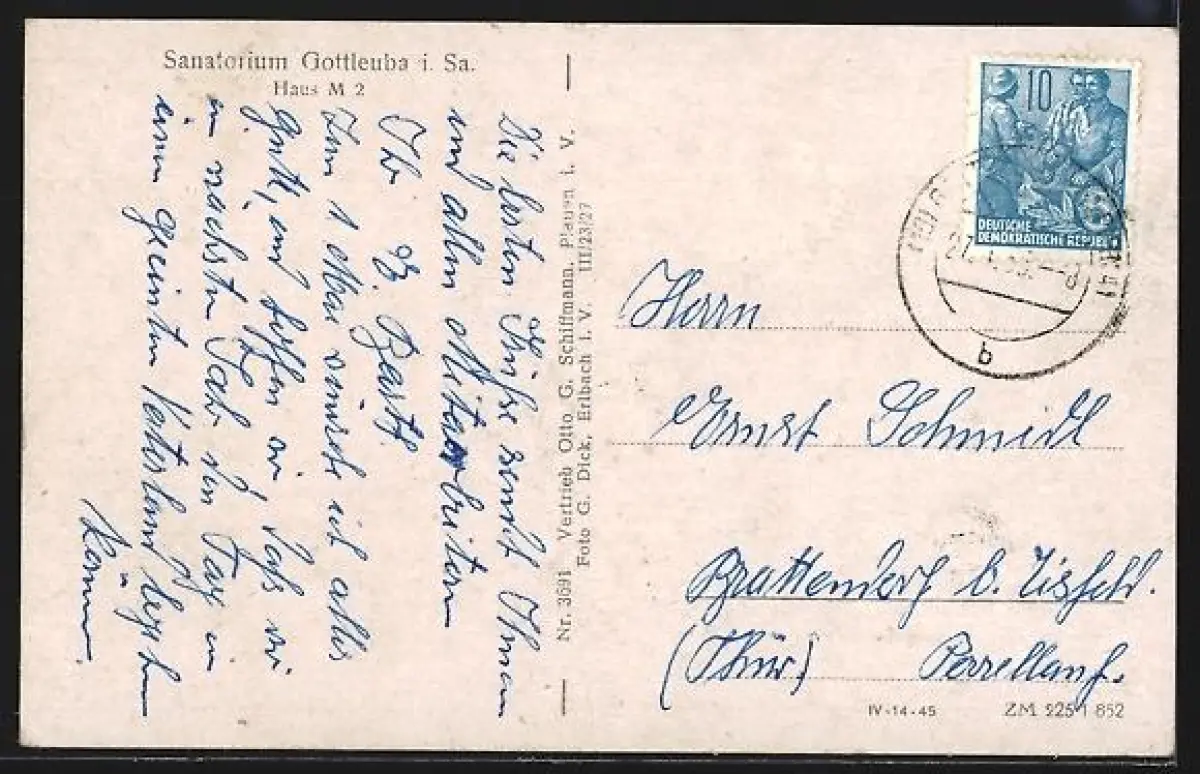 Sanatorium Gottleuba i. Sa.
Haus M 2
Die besten Grüße sendet Ihnen
und allen Mitarbeitern
Ihr
Zum 1 Mai wünsche ich alles
Gute, und hoffen wir, daß wir
im nächsten Jahr den Tag in
einem geeinten Vaterland begehen
können.
Nr. 3691 Vertrieb Otto G. Schiffmann, Plauen i. V.
Foto G. Dick, Erlbach i. V. III/23/27
10
DEUTSCHE
DEMOKRATISCHE REPUBLIK
b
Herrn
Ernst Schmidt
Brattendorf b. Eisfeld.
(Thür) Porzellanf.
IV-14-45 ZM 225 1 852